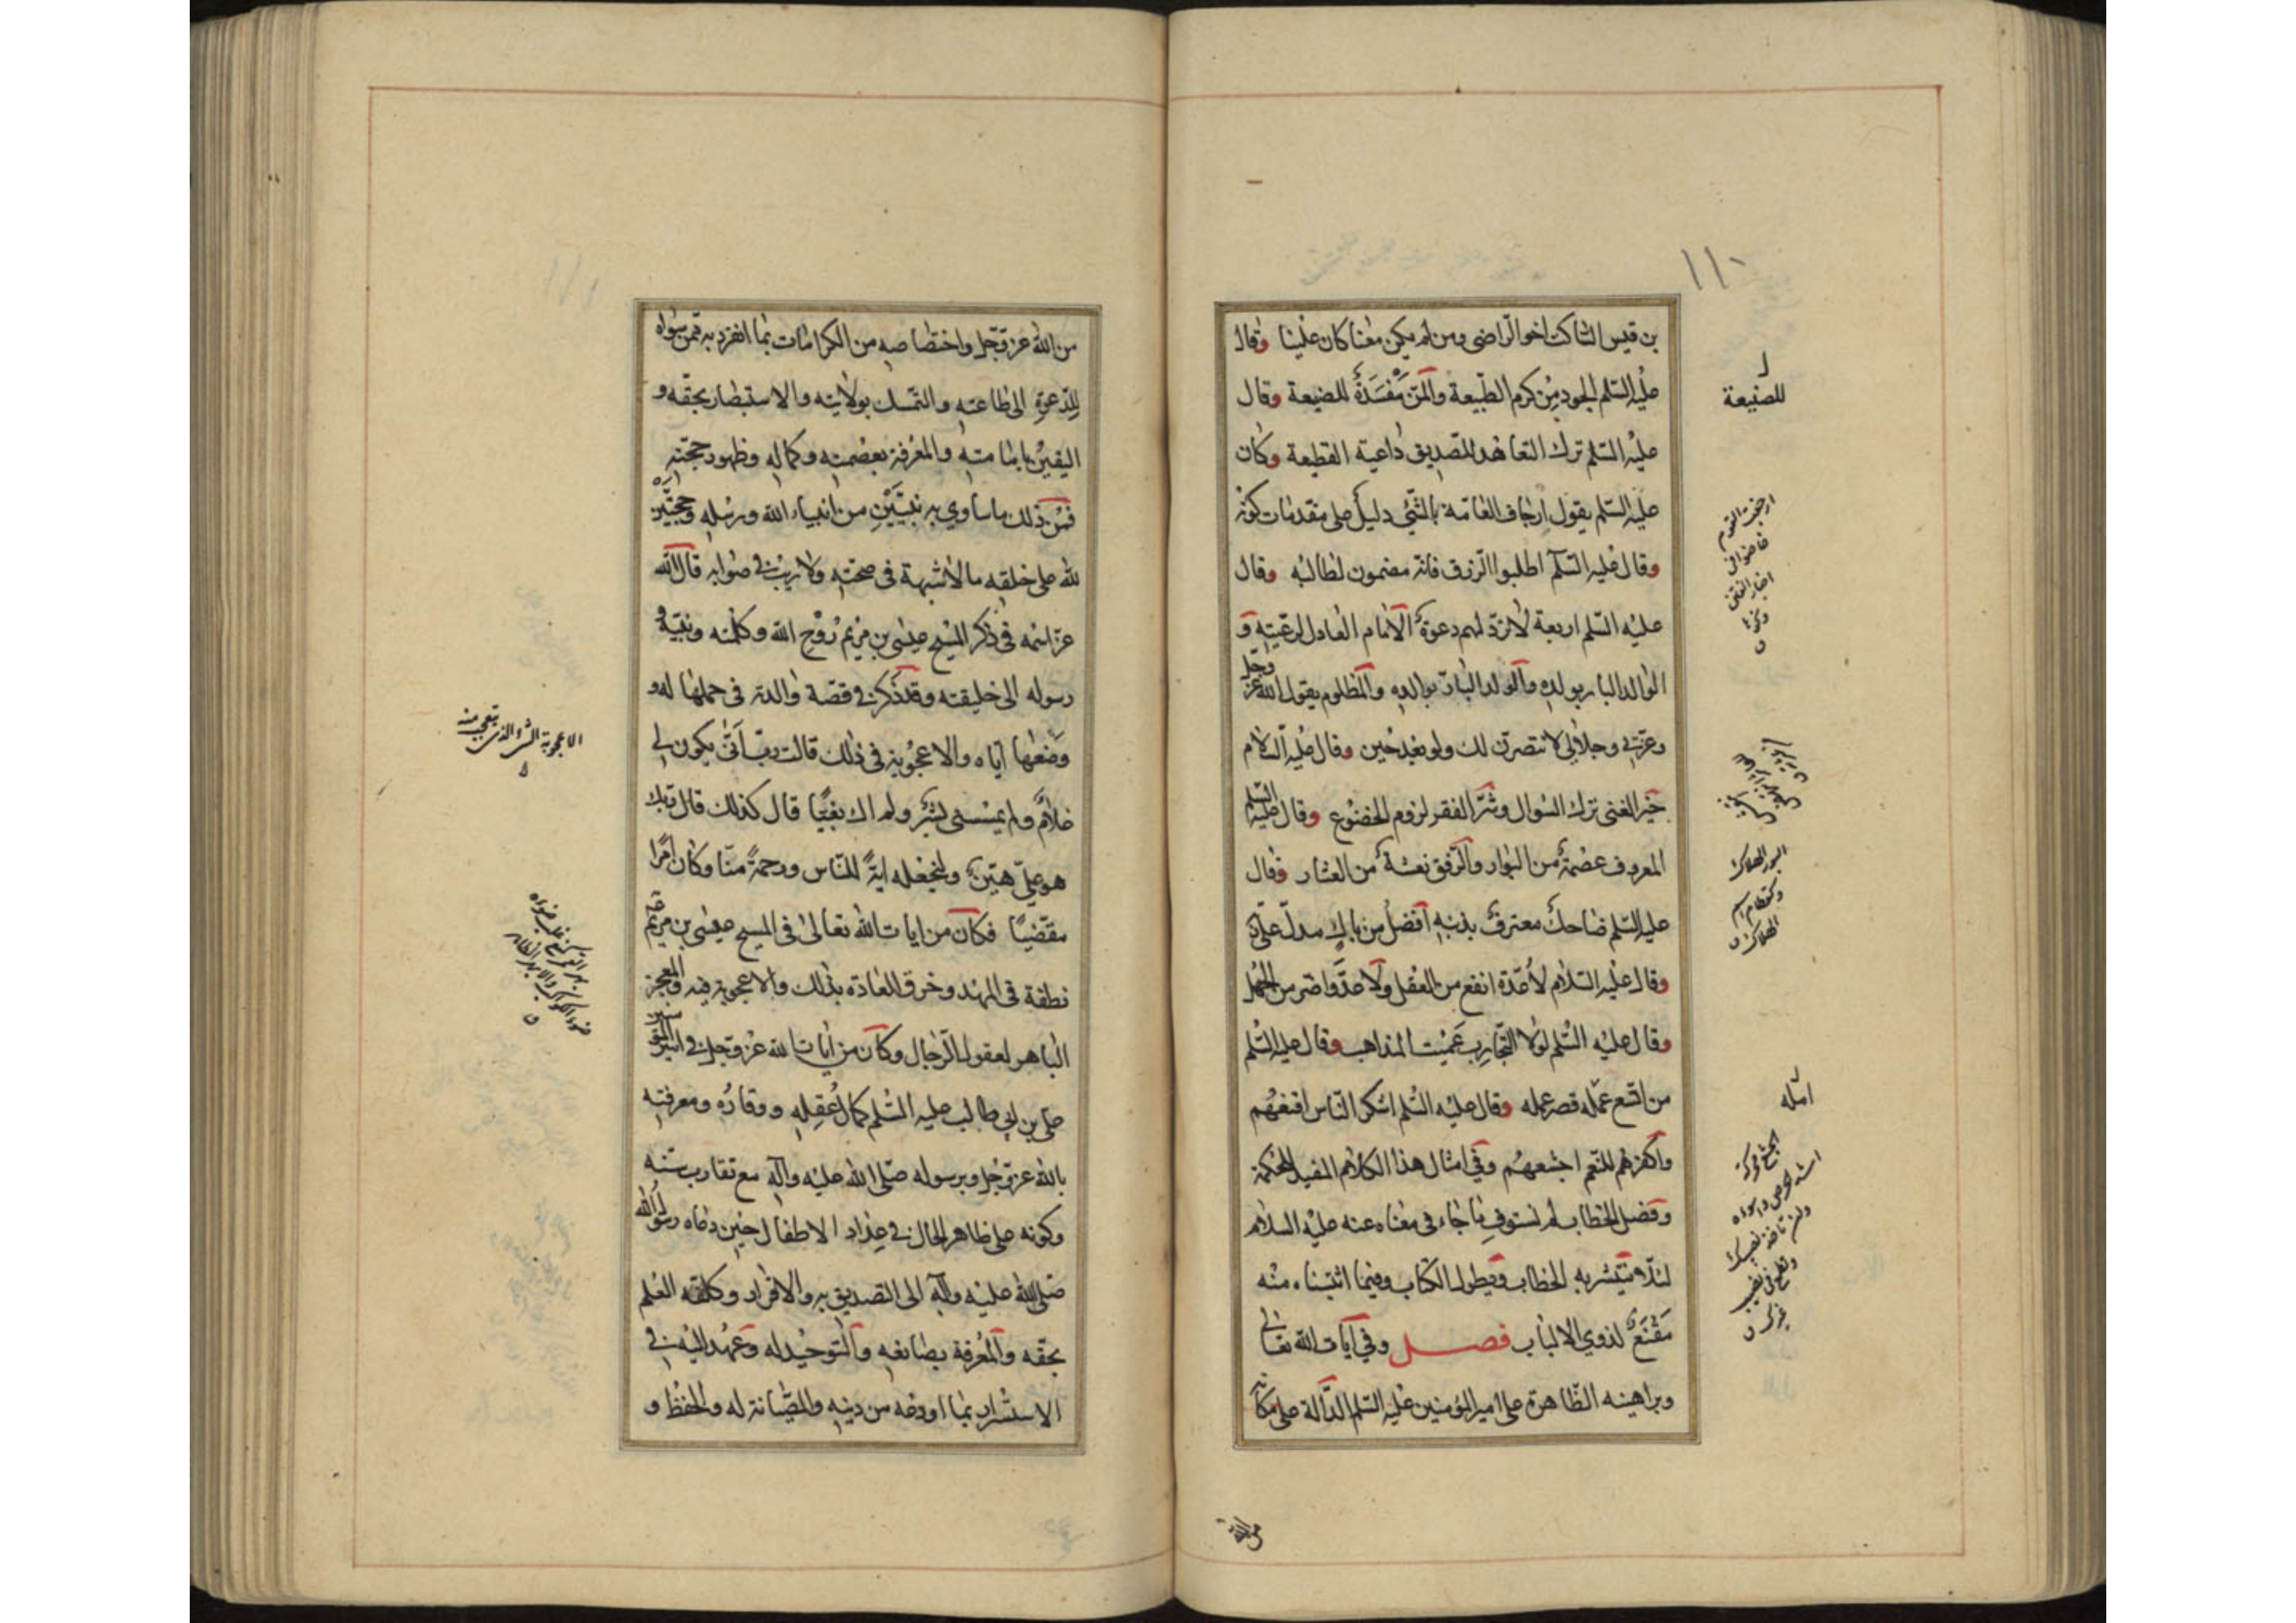 ١١٠
بن قيس الشاكت اخو الراضى ومن لم يكن معنا كان علينا وقال
عليه السّلم الجود مِن كرم الطّبيعة والمَنّ مَفْسَدَةٌ للصنيعة وقال
عليه السّلم ترك التعاهد للصديق داعية القطيعة وكان
عليه السّلم يقول ارجاف العامّة بالشّئ دليل على مقدمات كونه
وقال عليه السّلم اطلبوا الرزق فانّه مضمون لطالبه وقال
عليه السّلم اربعة لا تردّ لهم دعوة الامام العادل لرعيّته و
الوالد البار بولده والولد البارّ بوالده والمظلوم يقول الله عزّ وجلّ
وعزّتى وجلالى لانتصرنّ لك ولو بعد حين وقال عليه السّلام
خير الغنى ترك السّوال وشرّ الفقر لزوم الخضوع وقال عليه السّلم
المعروف عصمة من البوار والرّفق نعشة من العثار وقال
عليه السّلم ضاحك معترف بذنبه افضل من باك مدلّ على ربّه
وقال عليه السّلام لا عُدّة انفع من العقل ولا عدوّ اضرّ من الجهل
وقال عليه السّلم لولا التّجارِب عَمِيَت المذاهب وقال عليه السّلم
من اتّسع عمله قصر عمله وقال عليه السّلم اشكر النّاس اقنعهُم
واكفرهم للنّعم اجشعهُم وفى امثال هذا الكلام المفيد للحكمة
وفصل الخطاب لم نستوف ما جاء فى معناه عنه عليه السلام
لئلّا ينتشر به الخطاب ويطول الكتاب وفيما اثبتناه منه
مَقْنَعٌ لذوى الالباب فصل وفى آيات الله تعالى
وبراهينه الظّاهرة على امير المؤمنين عليه السّلم الدّالة على مكانه
للصنيعة
ارجفت القوم
خاضوا فى
اخبار الفتن
البور الهلاك
الهلاك
امله
من الله
من الله عزّ وجلّ واختصاصه من الكرامات بما انفرد به ممّن سواه
للدّعوة الى طاعته والتمسّك بولايته والاستبصار بحقّه و
اليقين بامامته والمعرفة بعصمته وكماله وظهور حجّته
فمن ذلك ما ساوى به نبيّين من انبياء الله ورسله وحجّتين
لله على خلقه ما لا شبهة فى صحته ولا ريب فى صوابه قال الله
عزّ اسمه فى ذكر المسيح عيسى بن مريم رُوح الله وكلمته ونبيّه و
رسوله الى خليقته وقد ذكر فى قصّة والدته فى حملها له و
وضعها ايّاه والاعجُوبة فى ذلك قالت ربّ اَنّى يكون لى
غلام ولم يمسسنى بشر ولم اك بغيّا قال كذلك قال ربّك
هو علىّ هيّن ولنجعله ايةً للنّاس ورحمةً منّا وكان امرًا
مقضيّا فكان من ايات الله تعالى فى المسيح عيسى بن مريم
نطقه فى المهد وخرق العادة بذلك والاعجوبة فيه والمعجز
الباهر لعقول الرّجال وكان من ايات الله عزّ وجلّ فى امير المؤمنين
على بن ابى طالب عليه السّلم كمال عقله ووقاره ومعرفته
بالله عزّ وجلّ وبرسوله صلّى الله عليه وآله مع تقارب سنّه
وكونه على ظاهر الحال فى عداد الاطفال حين دعاه رسول الله
صلّى الله عليه وآله الى التصديق به والاقرار وكلّفه العلم
بحقّه والمعرفة بصانعه والتوحيد له وعهد اليه فى
الاستسرار بما اودعه من دينه والصّيانة له والحفظ و
الاعجوبة الشئ الذى يتعجب منه